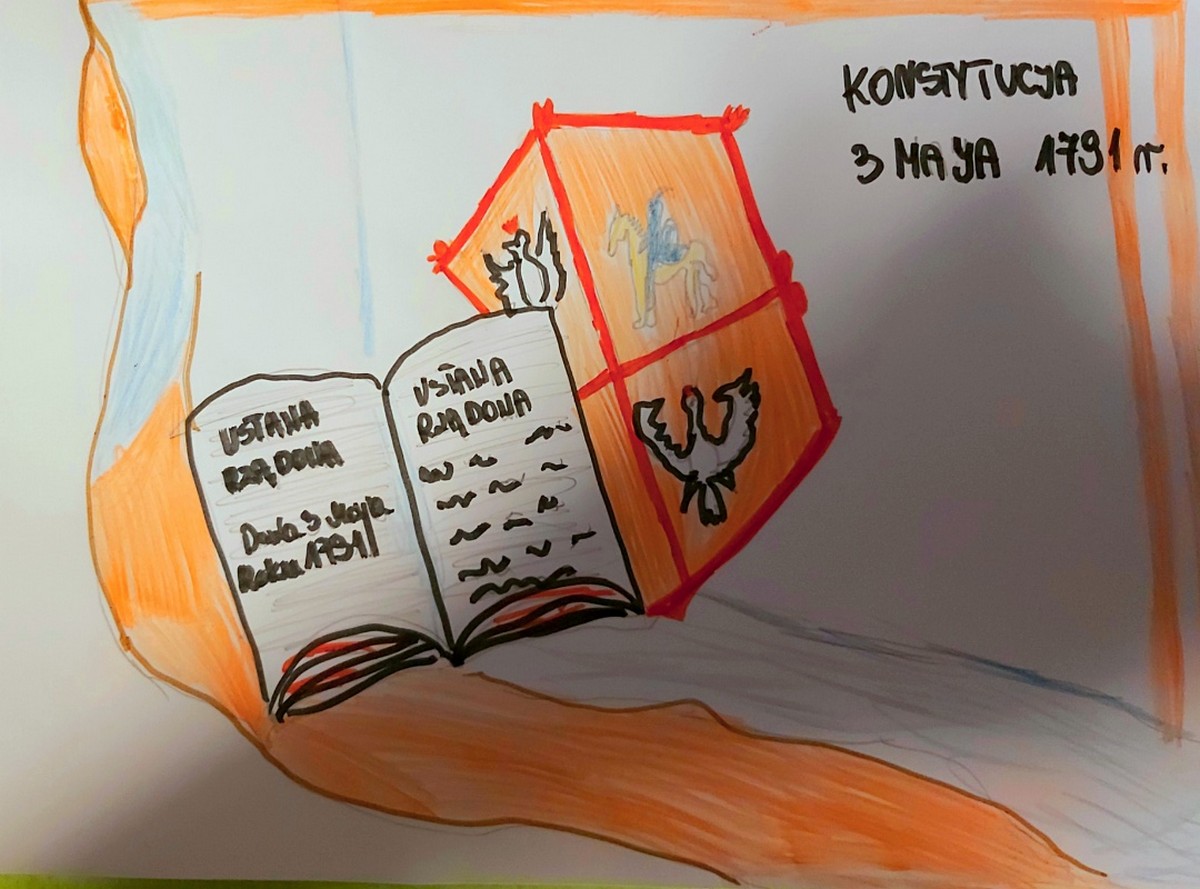 KONSTYTUCJA
3 MAYA 1791 r.
USTAWA
RZĄDOWA
Data 3 Maja
Roku 1791
USTAWA
RZĄDOWA